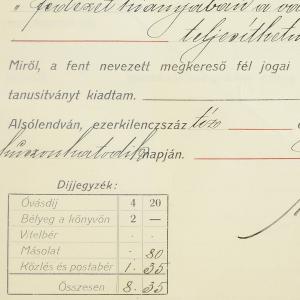 „ fedezet hiányában a vá
teljesíthet
Miről, a fent nevezett megkereső fél jogai
tanusitványt kiadtam.
Alsólendván, ezerkilenczszáz tíz
huszonhatodik napján.
Díjjegyzék:
Óvásdíj 4 20
Bélyeg a könyvön 2 —
Vitelbér . .
Másolat . 80
Közlés és postabér 1. 35
Összesen 8. 35